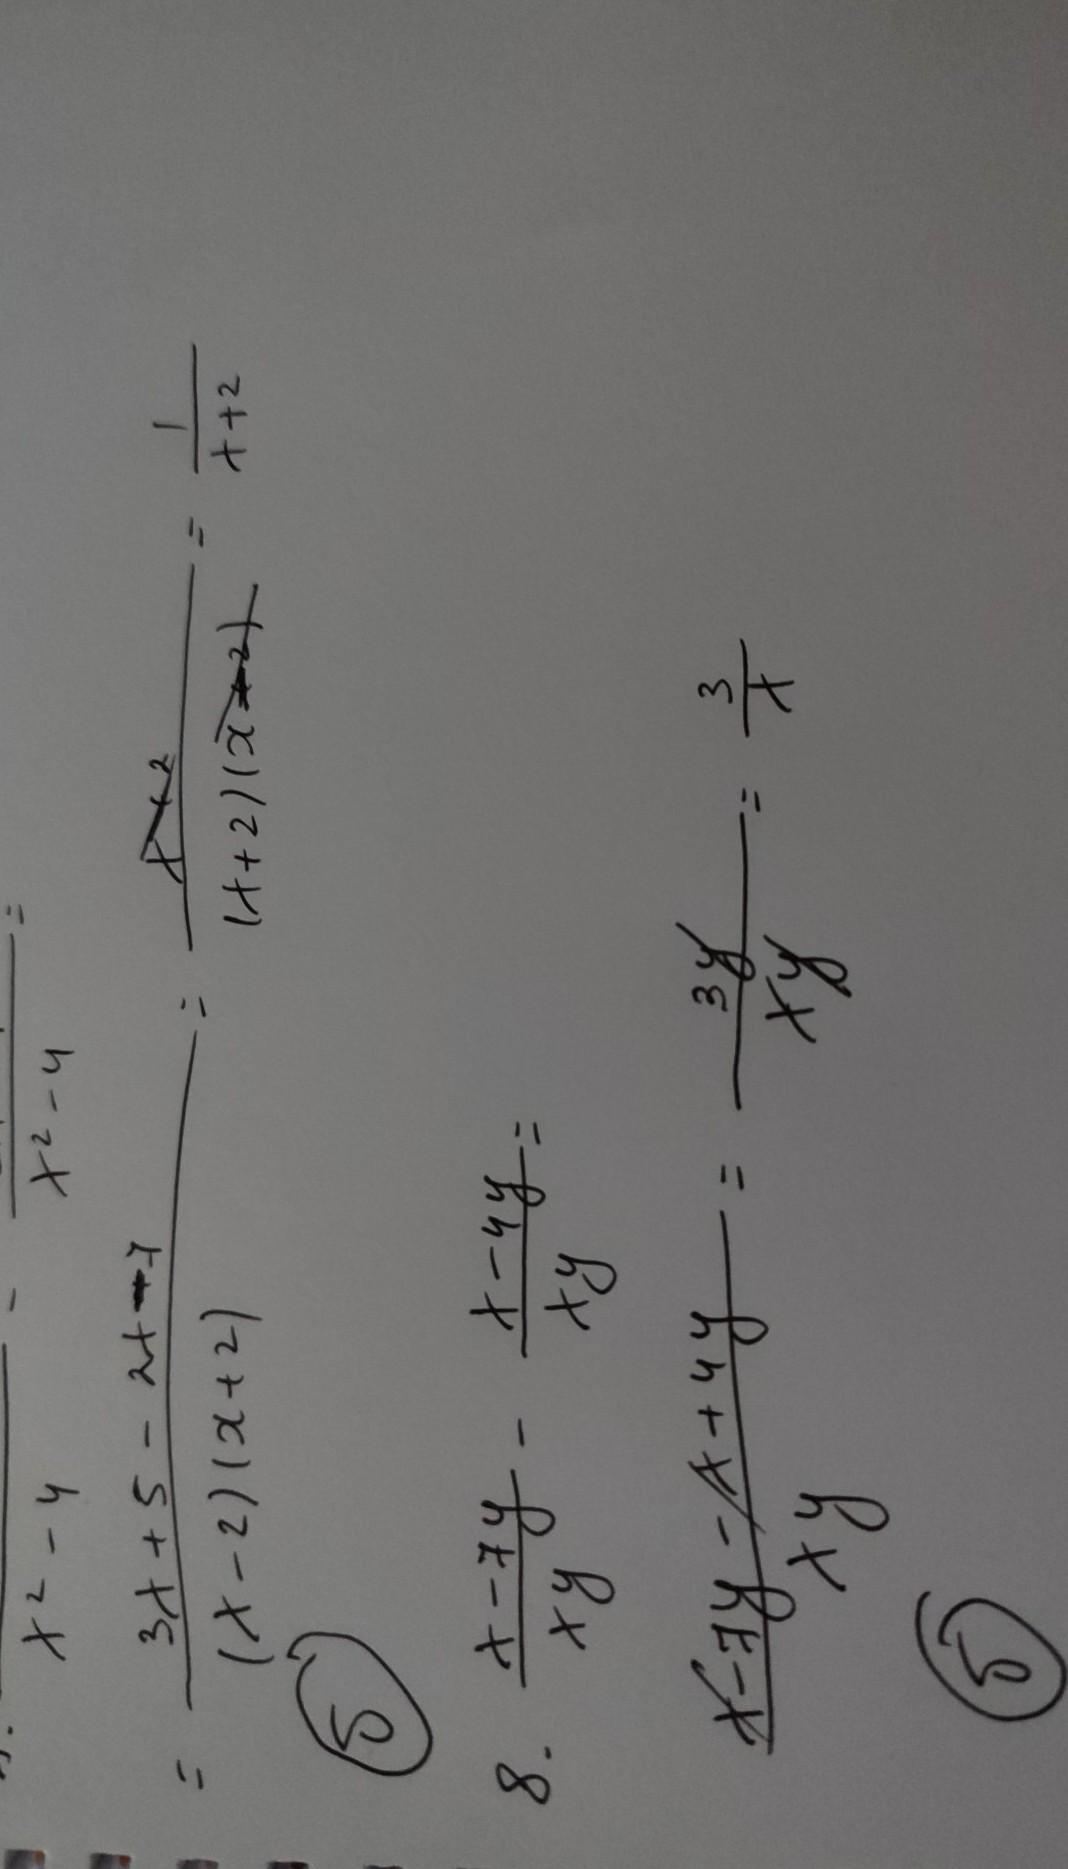 x² - 4 - x² - 4 =
= 3x + 5 - 2x - 7 / (x - 2)(x + 2) = x - 2 / (x + 2)(x - 2) = 1 / x + 2
5
8. x - 7y / xy - x - 4y / xy =
x - 7y - x + 4y / xy = 3y / xy = 3 / x
5